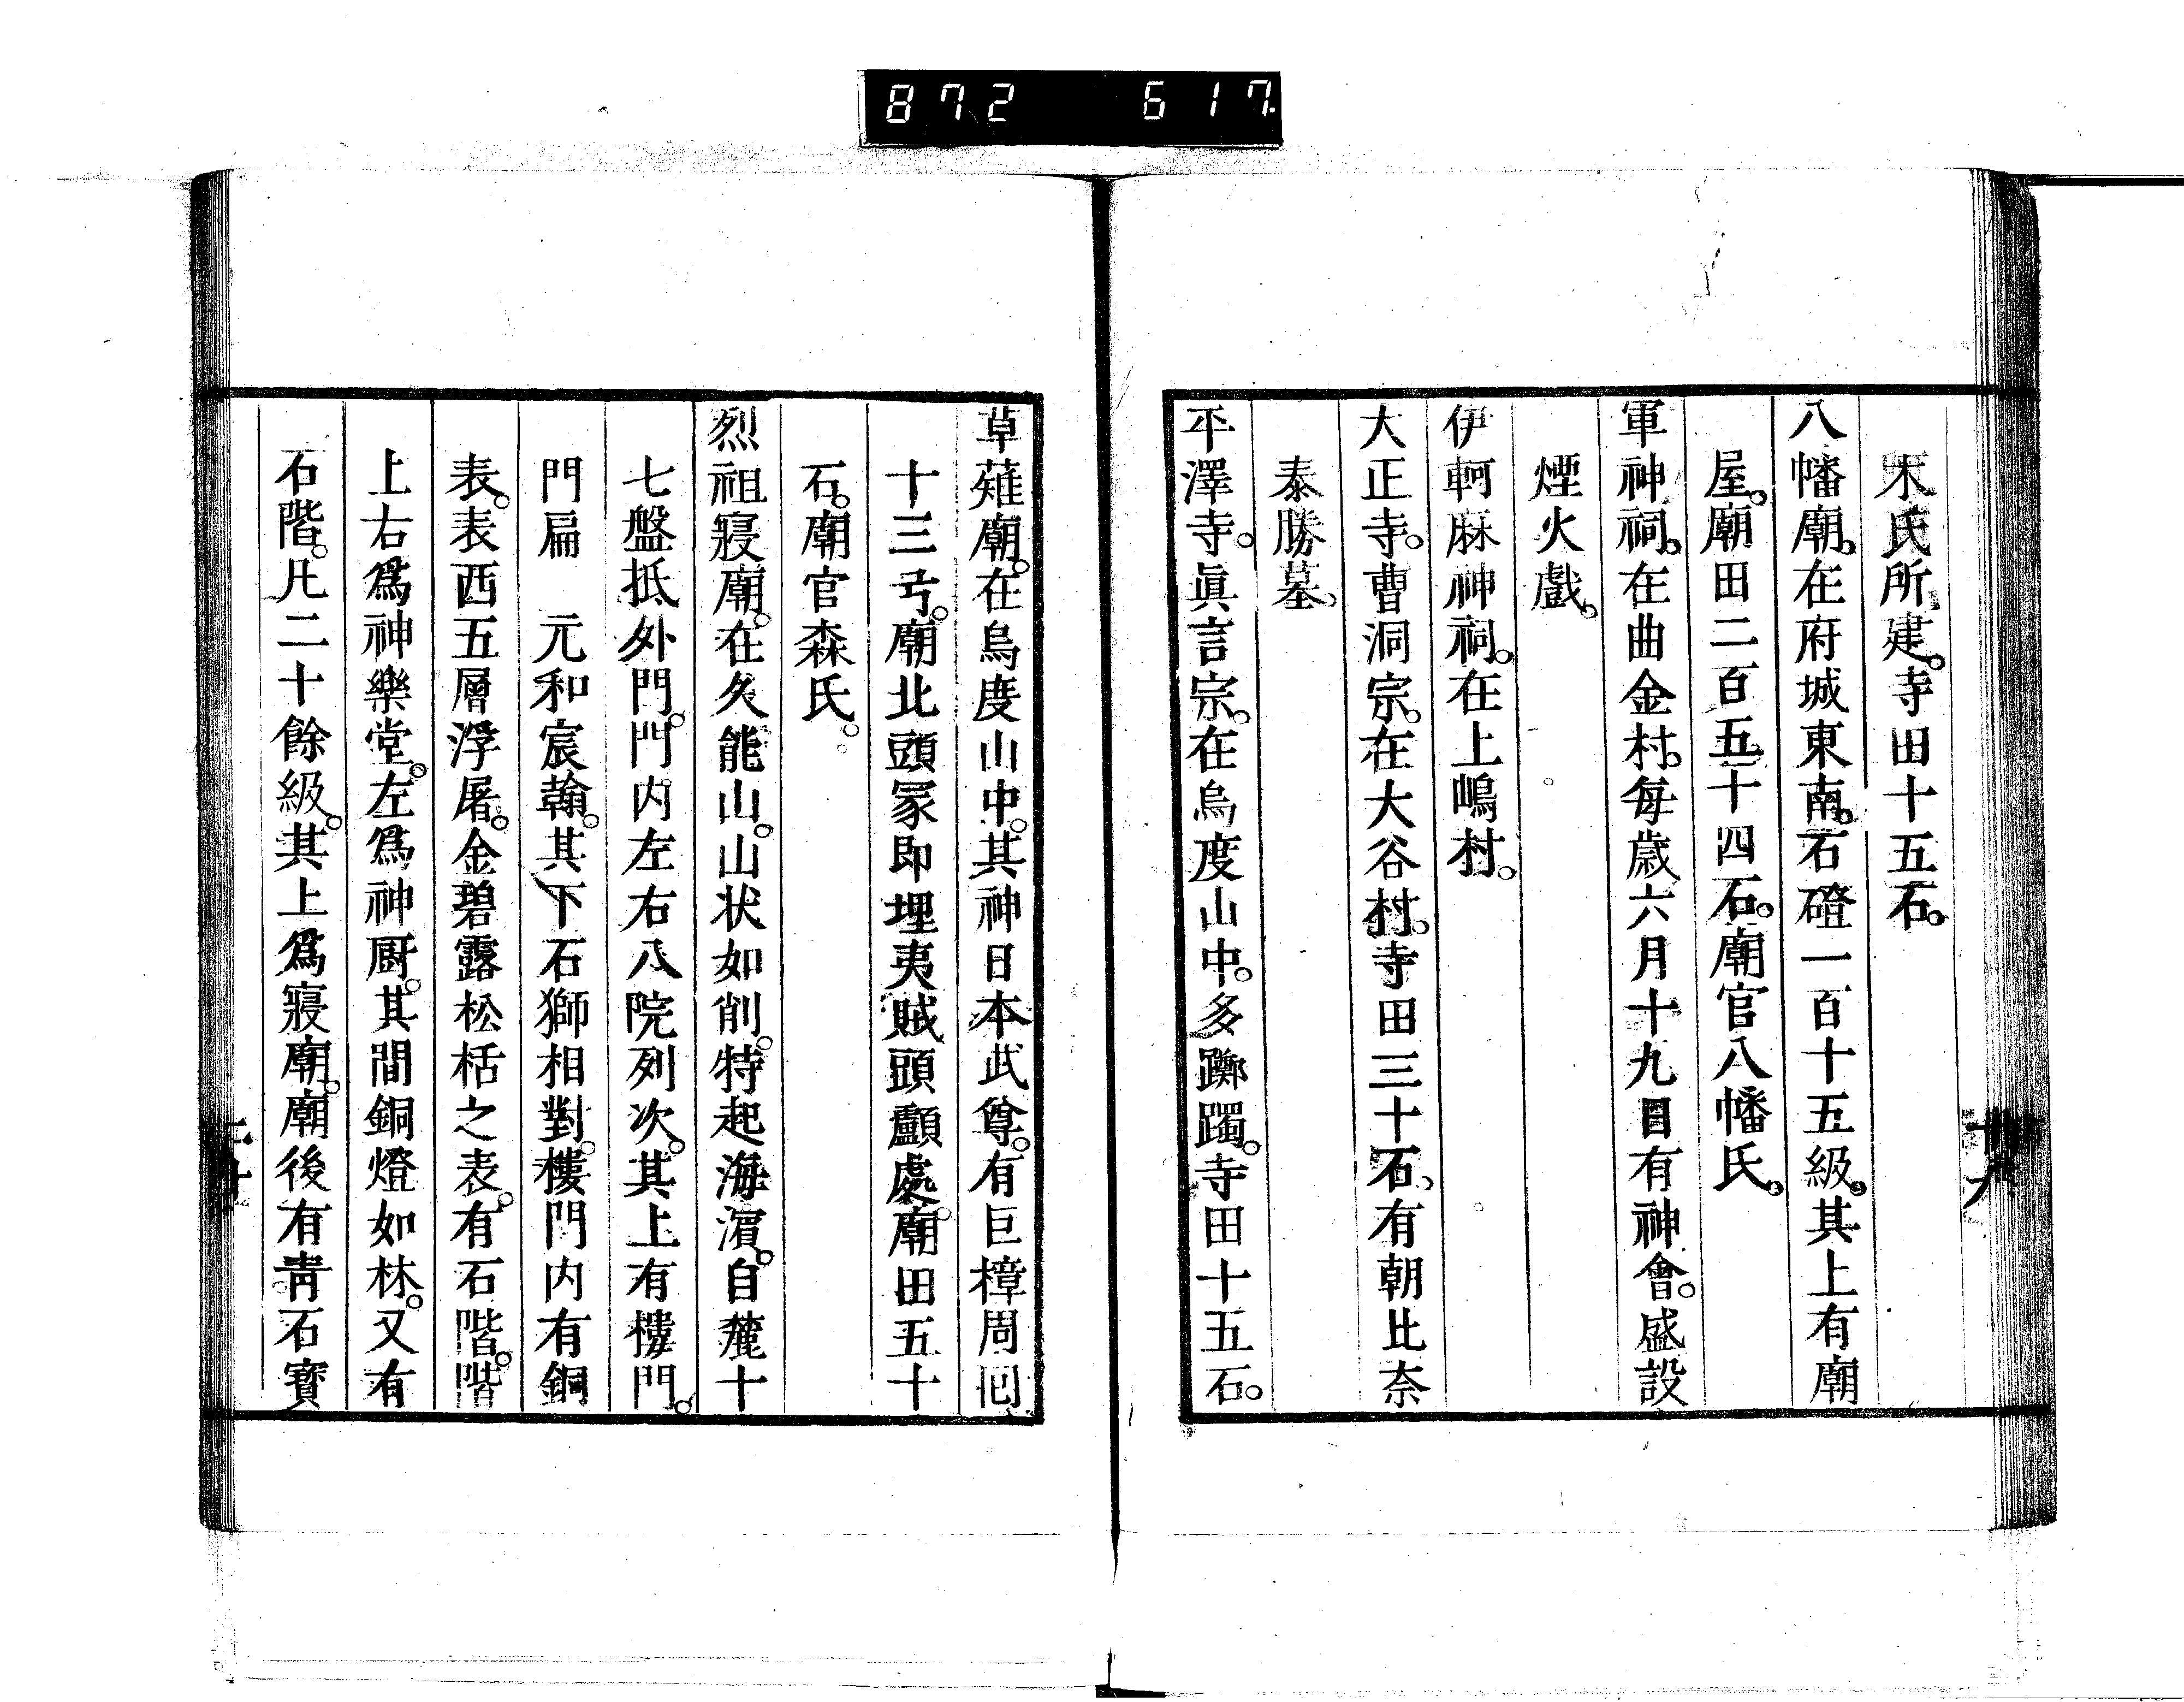 872 617
宋氏所建。寺田十五石。
八幡廟。在府城東南。石磴一百十五級。其上有廟
屋。廟田二百五十四石。廟官八幡氏。
軍神祠。在曲金村。每歲六月十九日有神會。盛設
煙火戲。
伊軻麻神祠。在上嶋村。
大正寺。曹洞宗。在大谷村。寺田三十石。有朝比奈
泰勝墓。
平澤寺。眞言宗。在烏度山中。多躑躅。寺田十五石。
草薙廟。在烏度山中。其神日本武尊。有巨樟周囘
十三弓。廟北頭冢即埋夷賊頭顱處。廟田五十
石。廟官森氏。
烈祖寢廟。在久能山。山状如削。特起海濵。自麓十
七盤抵外門。門内左右八院列次。其上有樓門。
門扁 元和宸翰。其下石獅相對。樓門内有銅
表。表西五層浮屠。金碧露松栝之表。有石階。階
上右爲神樂堂。左爲神厨。其間銅燈如林。又有
石階。凡二十餘級。其上爲寢廟。廟後有靑石寶